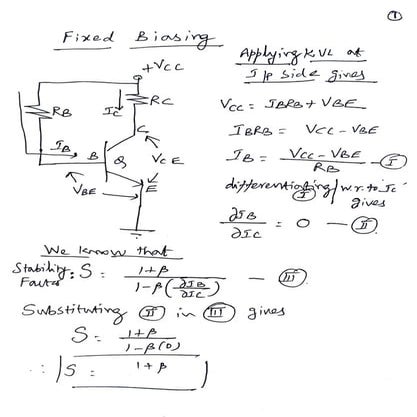 ①
Fixed Biasing
+VCC
RB
IC
RC
C
IB
B
Q
VCE
VBE
E
Applying KVL at
I/p side gives
VCC = IBRB + VBE
IBRB = VCC - VBE
IB = VCC - VBE / RB — Ⓘ
differentiating Ⓘ w.r.to IC
gives
∂IB / ∂IC = 0 — ⒾⒾ
We know that
Stability Factor: S = 1+β / 1-β(∂IB / ∂IC) — ⒾⒾⒾ
Substituting ⒾⒾ in ⒾⒾⒾ gives
S = 1+β / 1-β(0)
∴ S = 1+β